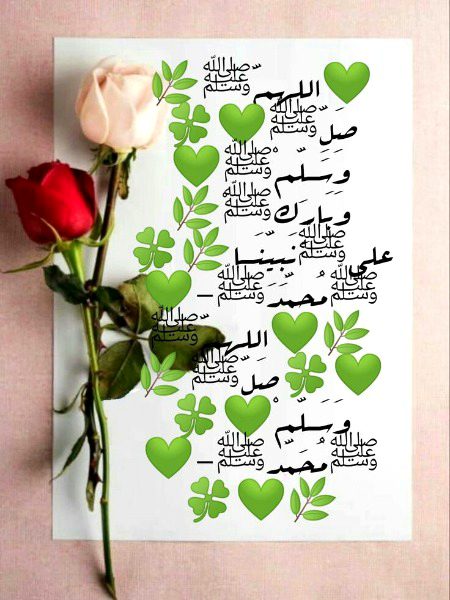 💚 اللهمّ ﷺ 🌿
صَلِّ ﷺ 💚 🍀
وَسَلّمْ ﷺ 💚
وَبَارِكْ ﷺ 🌿
علي ﷺ نَبِيّنَا 🌿 🍀
ﷺ مُحمَّد ﷺ _ 💚
🌿 💚 اللهمّ ﷺ
💚 🍀 صَلّ ﷺ 🌿
وَسَلّمْ 💚 🍀
ﷺ مُحَمَّد ﷺ _ 💚
🌿 💚 🍀